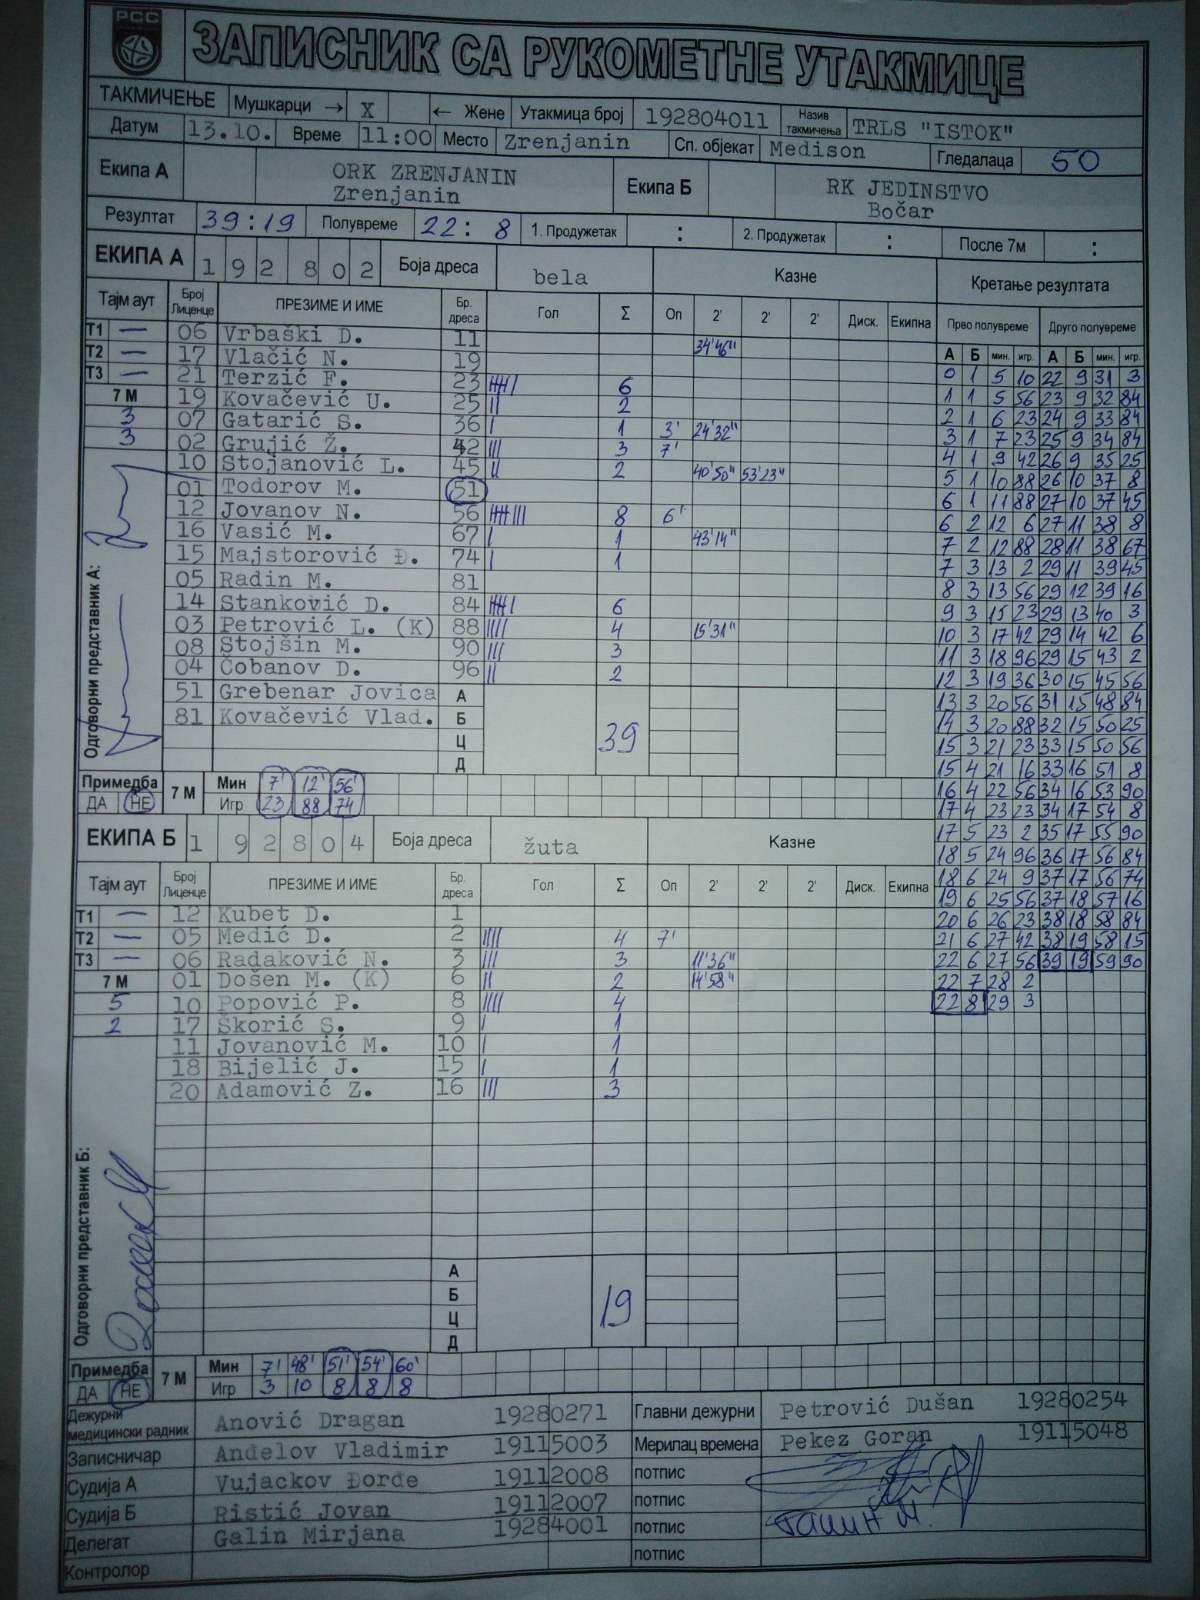 РСС
ЗАПИСНИК СА РУКОМЕТНЕ УТАКМИЦЕ
ТАКМИЧЕЊЕ Мушкарци → X ← Жене Утакмица број 192804011 Назив такмичења TRLS "ISTOK"
Датум 13.10. Време 11:00 Место Zrenjanin Сп. објекат Medison Гледалаца 50
Екипа А ORK ZRENJANIN Zrenjanin Екипа Б RK JEDINSTVO Bočar
Резултат 39:19 Полувреме 22:8 1. Продужетак : 2. Продужетак : После 7м :
ЕКИПА А 1 9 2 8 0 2 Боја дреса bela Казне Кретање резултата
Тајм аут Број Лиценце ПРЕЗИМЕ И ИМЕ Бр. дреса Гол Σ Оп 2' 2' 2' Диск. Екипна Прво полувреме Друго полувреме
А Б мин. игр. А Б мин. игр.
T1 — 06 Vrbaški D. 11
T2 — 17 Vlačić N. 19 34'46"
T3 — 21 Terzić F. 23 |||| | 6
7 М 19 Kovačević U. 25 || 2
3 07 Gatarić S. 36 | 1 3' 24'32"
3 02 Grujić Ž. 42 ||| 3 7'
10 Stojanović L. 45 || 2 40'50" 53'23"
01 Todorov M. 51
12 Jovanov N. 56 |||| ||| 8 6'
16 Vasić M. 67 | 1 43'14"
15 Majstorović Đ. 74 | 1
05 Radin M. 81
14 Stanković D. 84 |||| | 6
03 Petrović L. (K) 88 |||| 4 15'31"
08 Stojšin M. 90 ||| 3
04 Čobanov D. 96 || 2
51 Grebenar Jovica А
81 Kovačević Vlad. Б
Ц 39
Д
Одговорни представник А:
0 1 5 10 22 9 31 3
1 1 5 56 23 9 32 84
2 1 6 23 24 9 33 84
3 1 7 23 25 9 34 84
4 1 9 42 26 9 35 25
5 1 10 88 26 10 37 8
6 1 11 88 27 10 37 45
6 2 12 6 27 11 38 8
7 2 12 88 28 11 38 67
7 3 13 2 29 11 39 45
8 3 13 56 29 12 39 16
9 3 15 23 29 13 40 3
10 3 17 42 29 14 42 6
11 3 18 96 29 15 43 2
12 3 19 36 30 15 45 56
13 3 20 56 31 15 48 84
14 3 20 88 32 15 50 25
15 3 21 23 33 15 50 56
15 4 21 16 33 16 51 8
16 4 22 56 34 16 53 90
17 4 23 23 34 17 54 8
17 5 23 2 35 17 55 90
18 5 24 96 36 17 56 84
18 6 24 9 37 17 56 74
19 6 25 56 37 18 57 16
20 6 26 23 38 18 58 84
21 6 27 42 38 19 58 15
22 6 27 56 39 19 59 90
22 7 28 2
22 8 29 3
Примедба 7 М Мин 7' 12' 56'
ДА НЕ Игр 23 88 74
ЕКИПА Б 1 9 2 8 0 4 Боја дреса žuta Казне
Тајм аут Број Лиценце ПРЕЗИМЕ И ИМЕ Бр. дреса Гол Σ Оп 2' 2' 2' Диск. Екипна
T1 — 12 Kubet D. 1
T2 — 05 Medić D. 2 |||| 4 7'
T3 — 06 Radaković N. 3 ||| 3 11'36"
7 М 01 Došen M. (K) 6 || 2 14'58"
5 10 Popović P. 8 |||| 4
2 17 Škorić S. 9 | 1
11 Jovanović M. 10 | 1
18 Bijelić J. 15 | 1
20 Adamović Z. 16 ||| 3
Одговорни представник Б:
А
Б
Ц 19
Д
Примедба 7 М Мин 7' 48' 51' 54' 60'
ДА НЕ Игр 3 10 8 8 8
Дежурни медицински радник Anović Dragan 19280271 Главни дежурни Petrović Dušan 19280254
Записничар Anđelov Vladimir 19115003 Мерилац времена Pekez Goran 19115048
Судија А Vujackov Đorđe 19112008 потпис
Судија Б Ristić Jovan 19112007 потпис
Делегат Galin Mirjana 19284001 потпис Галин М.
Контролор потпис